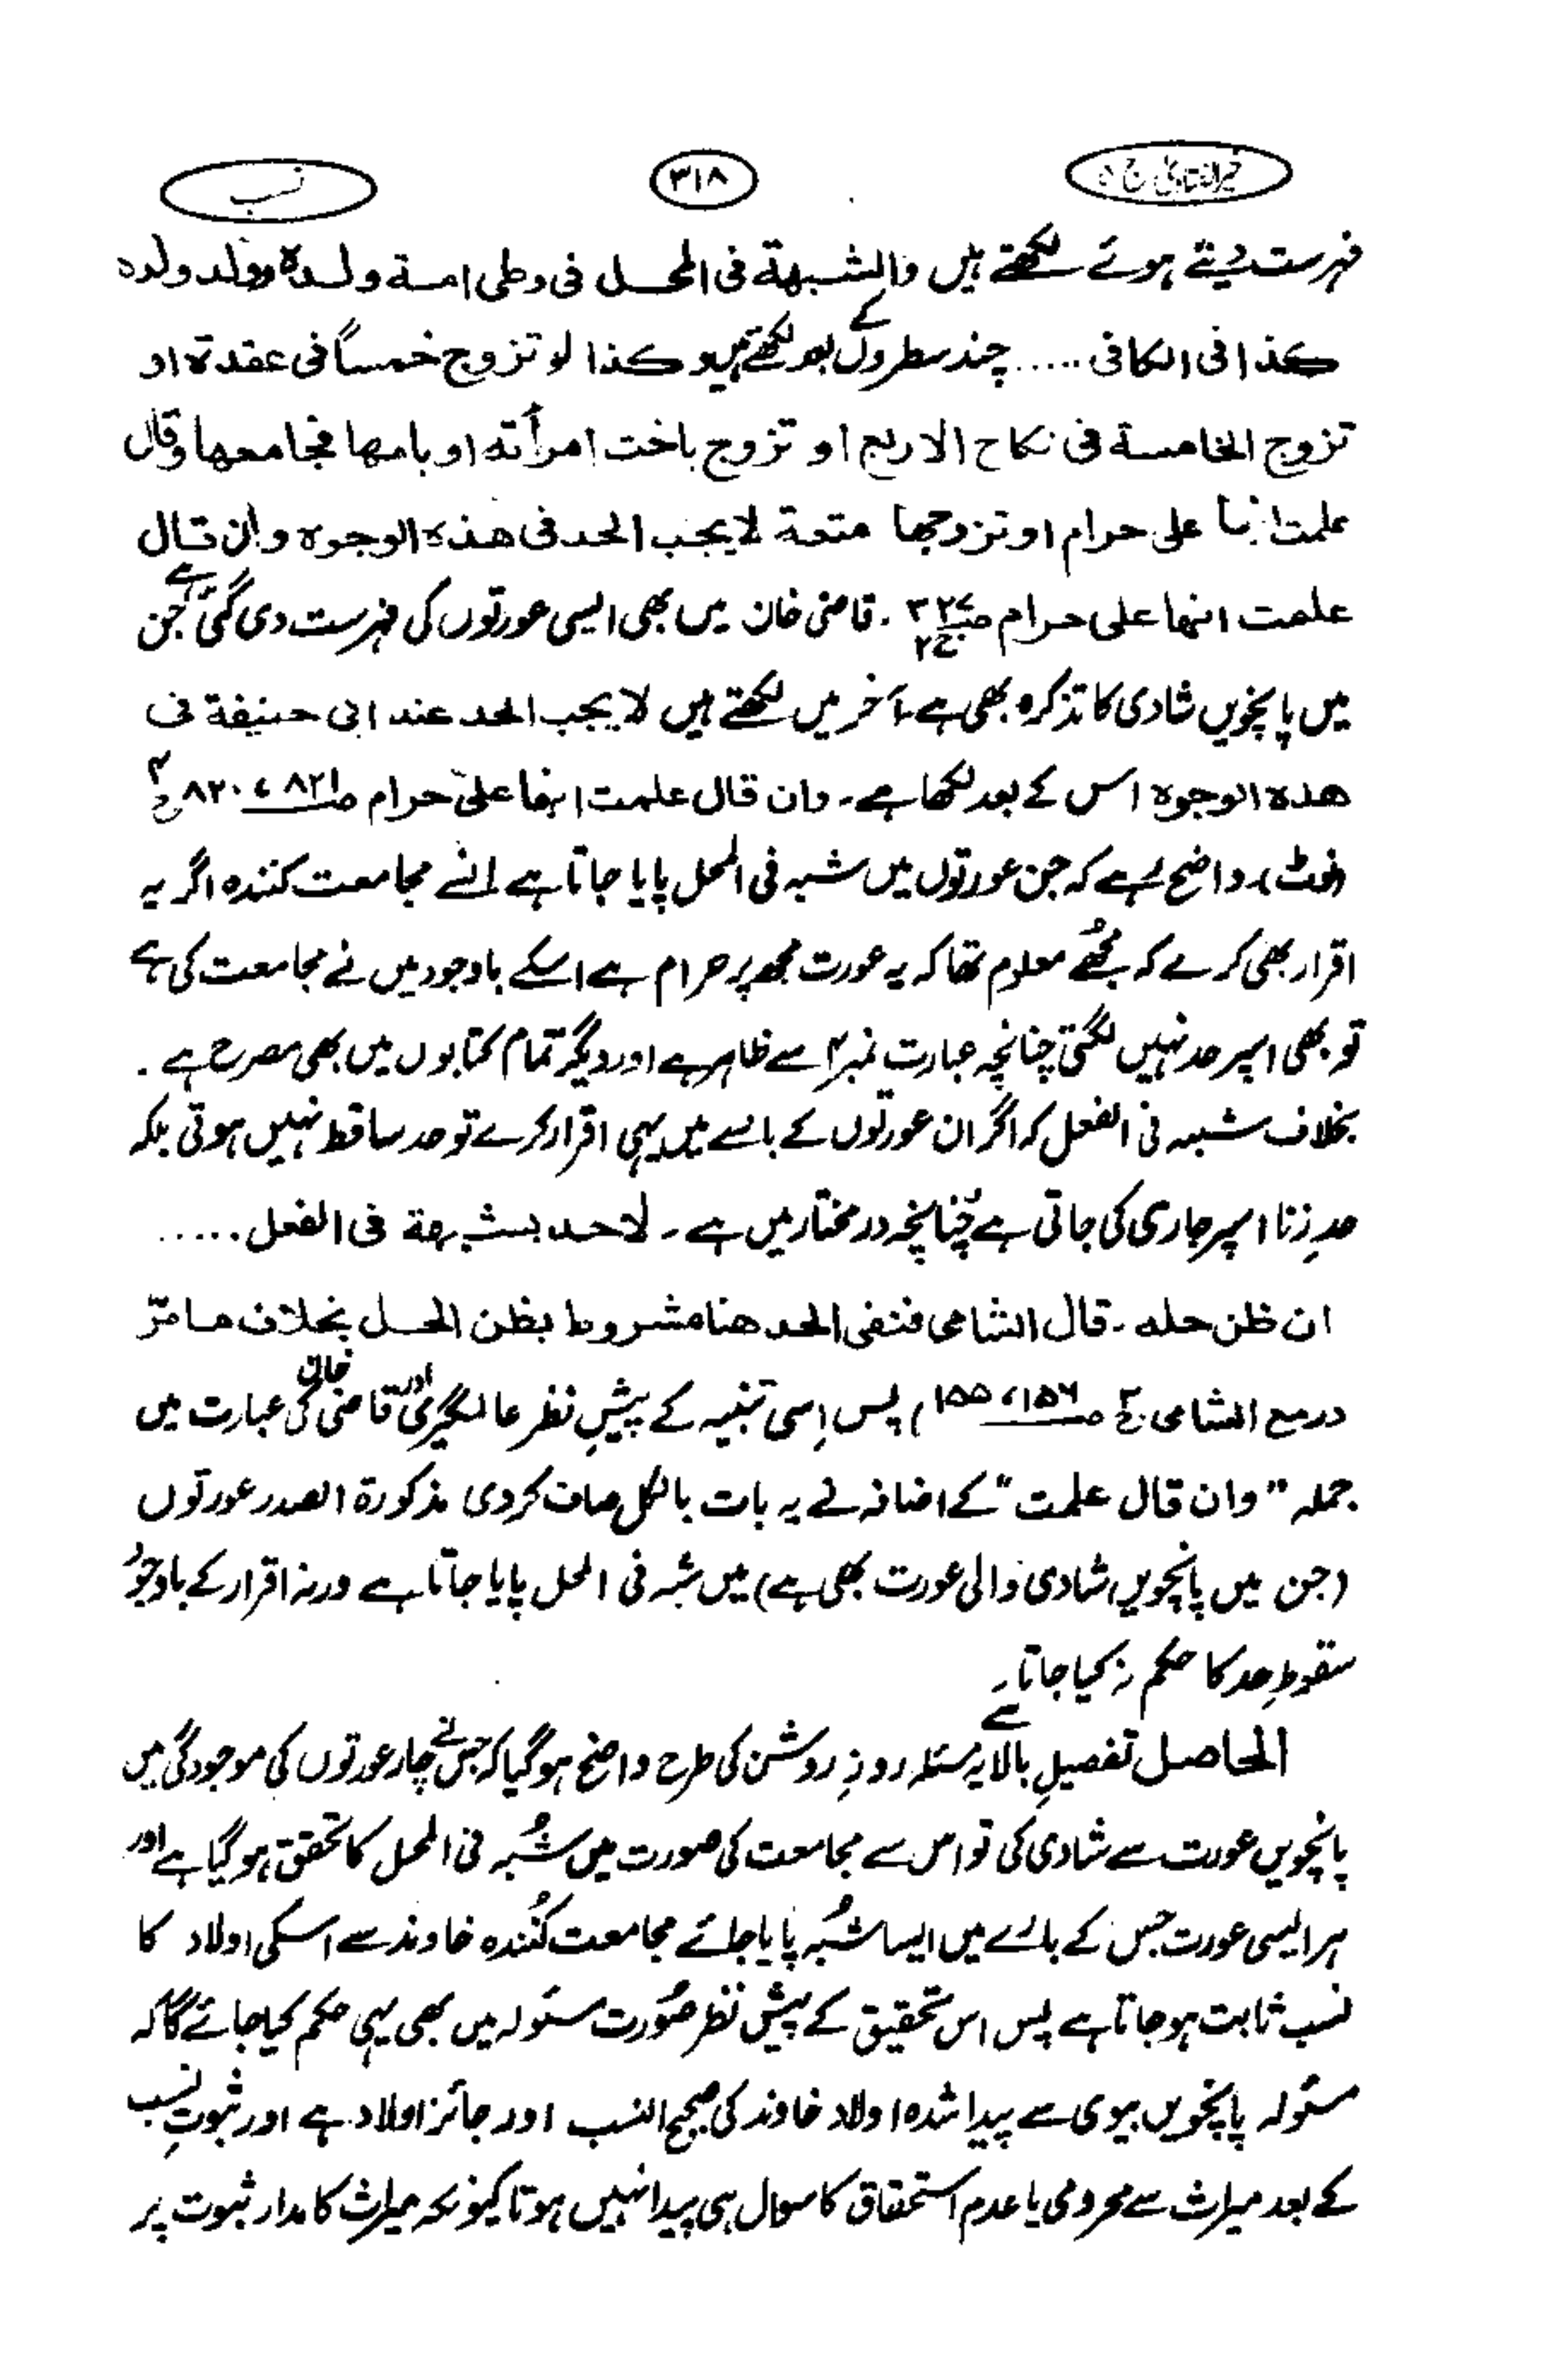 خیر الفتاویٰ ج ۵
۳۱۸
نسب
فہرست دیتے ہوئے لکھتے ہیں والشبهة فی المحل فی وطی امة ولده وولد ولده
کذا فی الکافی ..... چند سطروں کے بعد لکھتے ہیں وکذا لو تزوج خمساً فی عقدة او
تزوج الخامسة فی نکاح الاربع او تزوج باخت امرأته او بامها فجامعها وقال
علمت انها علی حرام او تزوجها متعة لا یجب الحد فی هذه الوجوه وان قال
علمت انها علی حرام . قاضی خان میں بھی ایسی عورتوں کی فہرست دی گئی ہے جن
میں پانچویں شادی کا تذکرہ بھی ہے۔ آخر میں لکھتے ہیں لا یجب الحد عند ابی حنیفة فی
هذه الوجوه اس کے بعد لکھا ہے۔ وان قال علمت انها علی حرام ص ۸۲۱ ، ۸۲۰ ج ۴
(نوٹ)۔ واضح رہے کہ جن عورتوں میں شبہ فی المحل پایا جاتا ہے ان سے مجامعت کنندہ اگر یہ
اقرار بھی کرے کہ مجھے معلوم تھا کہ یہ عورت مجھ پر حرام ہے اسکے باوجود میں نے مجامعت کی ہے
تو بھی اسپر حد نہیں لگتی چنانچہ عبارت نمبر ۲ سے ظاہر ہے اور دیگر تمام کتابوں میں بھی مصرح ہے .
بخلاف شبہ فی الفعل کہ اگر ان عورتوں کے بارے میں یہی اقرار کرے تو حد ساقط نہیں ہوتی بلکہ
حدِ زنا اسپر جاری کی جاتی ہے چنانچہ در مختار میں ہے۔ لا حد بشبهة فی الفعل .....
ان ظن حله ۔ قال الشامی فنفی الحد هنا مشروط بظن الحل بخلاف ما مرّ
درمع الشامی ج ۳ ص ۱۵۶ ، ۱۵۵) پس اِسی تنبیہ کے پیشِ نظر عالمگیری اور قاضی خان کی عبارت میں
جملہ "وان قال علمت" کے اضافہ نے یہ بات بالکل صاف کر دی مذکورۃ الصدر عورتوں
(جن میں پانچویں شادی والی عورت بھی ہے) میں شبہ فی المحل پایا جاتا ہے ورنہ اقرار کے باوجود
سقوطِ حد کا حکم نہ کیا جاتا۔
الحاصل تفصیلِ بالا سے یہ مسئلہ روزِ روشن کی طرح واضح ہو گیا کہ جس نے چار عورتوں کی موجودگی میں
پانچویں عورت سے شادی کی تو اس سے مجامعت کی صورت میں شُبہ فی المحل کا تحقق ہو گیا ہے اور
ہر ایسی عورت جس کے بارے میں ایسا شُبہ پایا جائے مجامعت کُنندہ خاوند سے اسکی اولاد کا
نسب ثابت ہو جاتا ہے پس اس تحقیق کے پیش نظر صُورت مسئولہ میں بھی یہی حکم کیا جائے گا کہ
مسئولہ پانچویں بیوی سے پیدا شدہ اولاد خاوند کی صحیح النسب اور جائز اولاد ہے اور ثبوتِ نسب
کے بعد میراث سے محرومی یا عدم استحقاق کا سوال ہی پیدا نہیں ہوتا کیونکہ میراث کا مدار ثبوت پر